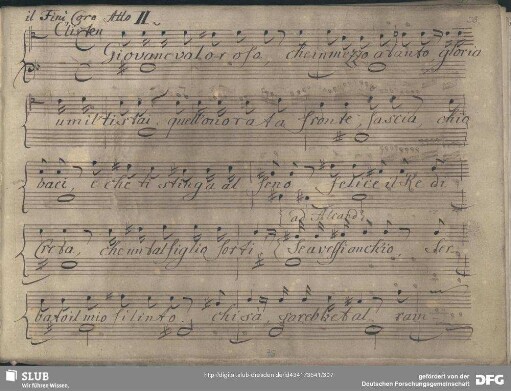 il Fine Coro Atto II
Clisten
Giovane valorosa che in mezzo a tanta gloria
umil ti stai, quell'onorata fronte, lascia ch'io
baci, e che ti stringa al seno felice il Re di
Creta, che un tal figlio sortì
ad Alcand:
Se avessi anch'io, ser
bato il mio filinto, chi sà sarebbe tal ram
SLUB
Wir führen Wissen.
http://digital.slub-dresden.de/
gefördert von der
Deutschen Forschungsgemeinschaft
DFG